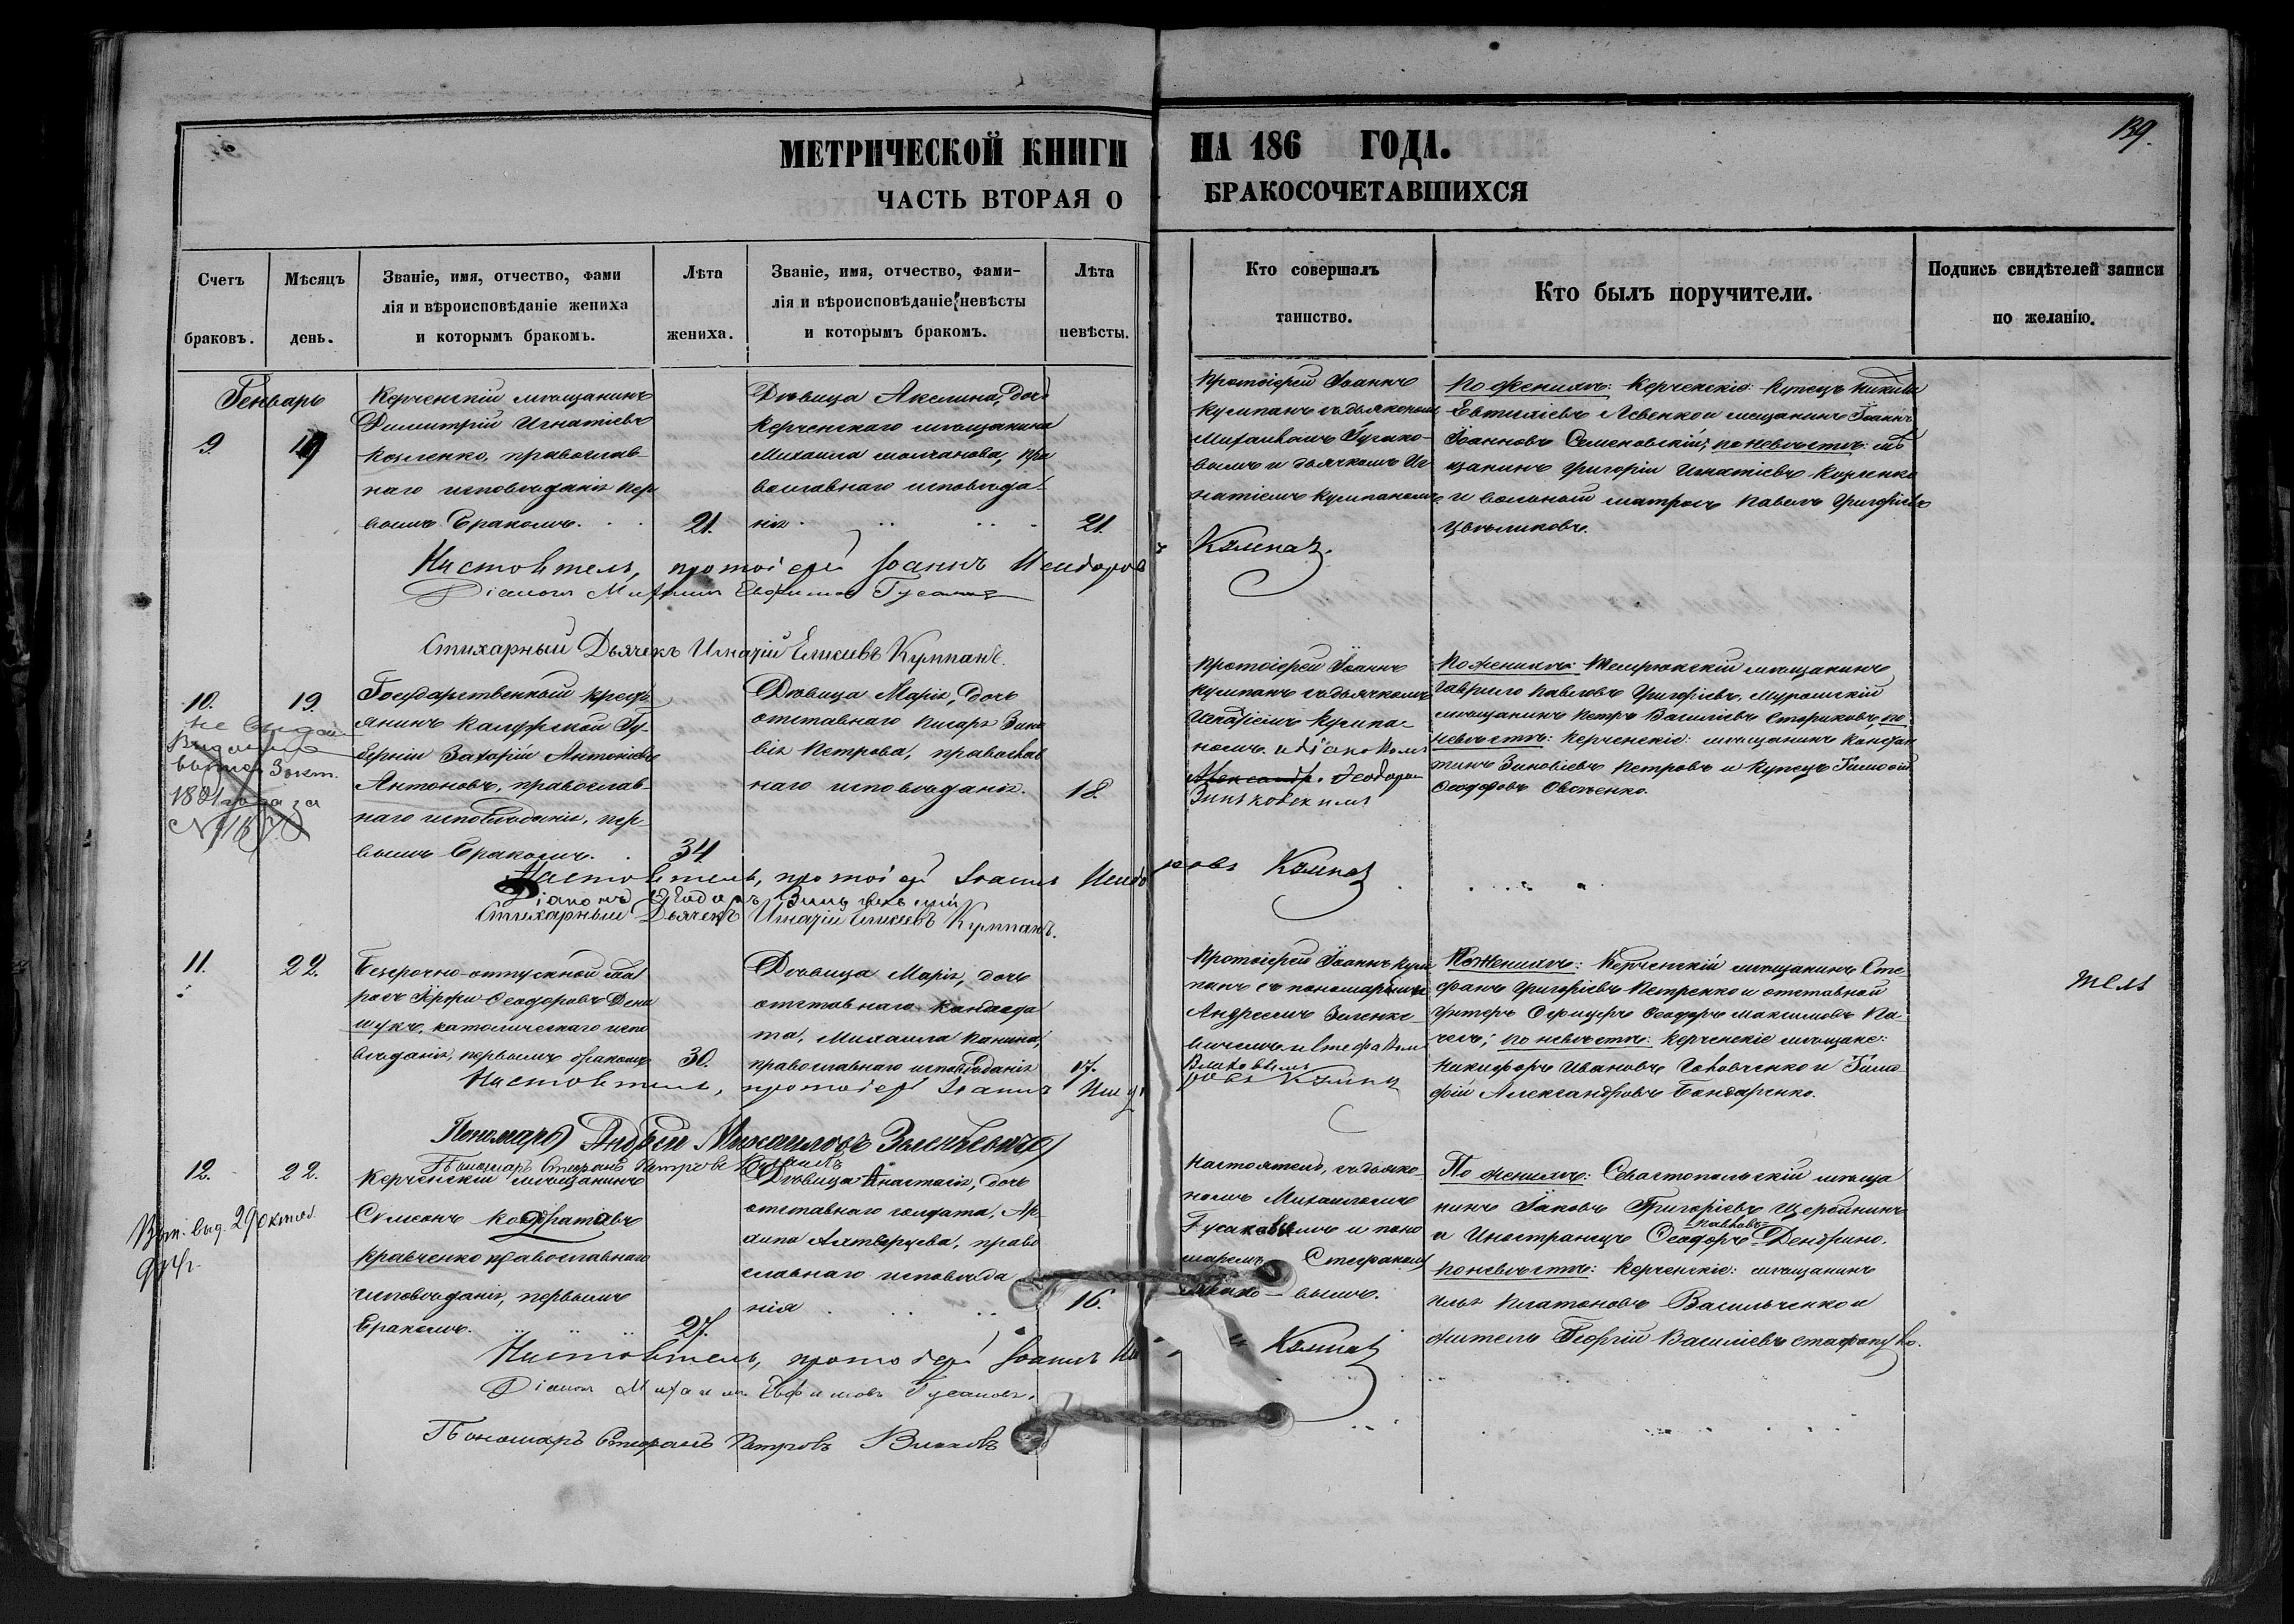 139.
МЕТРИЧЕСКОЙ КНИГИ НА 186 ГОДА.
ЧАСТЬ ВТОРАЯ О БРАКОСОЧЕТАВШИХСЯ
Счетъ
браковъ.
Мѣсяцъ
день.
Званіе, имя, отчество, фами
лія и вѣроисповѣданіе жениха
и которымъ бракомъ.
Лѣта
жениха.
Званіе, имя, отчество, фами-
лія и вѣроисповѣданіе невѣсты
и которымъ бракомъ.
Лѣта
невѣсты.
Кто совершалъ
таинство.
Кто былъ поручители.
Подпись свидѣтелей записи
по желанію.
Генварь
9.
19
Керченскій мѣщанинъ
Димитрій Игнатіевъ
Козленко, православ-
наго исповѣданія пер
вымъ бракомъ.
21.
Дѣвица Акелина, дочь
Керченскаго мѣщанина
Михаила Молчанова, пра
вославнаго исповѣда
нія
21.
Протоіерей Іоаннъ
Кумпанъ съ діакономъ
Михаиломъ Гусако-
вымъ и дьячкомъ Иг
натіемъ Кумпаномъ
По женихѣ: Керченскіе: купецъ Никита
Евтихіевъ Левенко и мещанинъ Іоаннъ
Іоанновъ Семеновскій; по невѣстѣ: мѣ
щанинъ Григорій Игнатіевъ Козленко
и вольный матросъ Павелъ Григоріевъ
Цвѣтиковъ.
Настоятель, протоіерей Іоаннъ Исидоровъ Кумпан.
Діаконъ Михаилъ Евфимов Гусаков
Стихарный Дьячекъ Игнатій Елисеевъ Кумпанъ.
10.
19.
1881 года за
Государственный крест
янинъ Калужской Гу-
берніи Захарій Антоніевъ
Антоновъ, православ-
наго исповѣданія, пер-
вымъ бракомъ.
34
Дѣвица Марія, дочь
отставнаго писаря Зино
вія Петрова, православ
наго исповѣданія.
18.
Протоіерей Іоаннъ
Кумпанъ съ дьячкомъ
Игнатіемъ Кумпа-
номъ и діакономъ
Александр. Феодоромъ
По женихѣ: Темрюкскій мѣщанинъ
Гаврило Павловъ Григоріевъ, Муромскій
мѣщанинъ Петръ Василіевъ Стариковъ, по
невѣстѣ: Керченскіе: мѣщанинъ Констан
тинъ Зиновіевъ Петровъ и купецъ Тимофѣй
Ѳеодоровъ Овсѣенко.
Настоятель, протоіерей Іоаннъ Исидоровъ Кумпан
Стихарный Дьячекъ Игнатій Елисеевъ Кумпанъ.
11.
22.
Безсрочно-отпускной мат
росъ Ѳеодоровъ Дени
щукъ, католическаго испо
вѣданія, первымъ бракомъ
30.
Дѣвица Марія, дочь
отставнаго
Михаила Канина,
православнаго исповѣданія
17.
Протоіерей Іоаннъ Кум
панъ съ пономарями
Андреемъ Зеленке-
вичемъ и Стефаномъ
По женихѣ: Керченскій мѣщанинъ Сте
фанъ Григоріевъ Петренко и отставной
унтеръ офицеръ Ѳеодоръ Максимовъ Па-
по невѣстѣ: Керченскіе мѣщане:
Никифоръ Ивановъ Головченко и Тимо
фій Александровъ Бондаренко.
Настоятель, протоіерей Іоаннъ Исидоровъ Кумпан
Пономарь Андрей Михаиловъ Зеленкевичъ
Пономарь Стефанъ Петровъ
12.
22.
Керченскій мѣщанинъ
Сѵмеонъ Кодратовъ
Кравченко православнаго
исповѣданія, первымъ
бракомъ.
27.
Дѣвица Анастасія, дочь
отставнаго солдата, Ар
хипа Ахтырцева, право
славнаго исповѣда
нія
16.
Настоятель, съ діако-
номъ Михаиломъ
Гусаковымъ и поно
марем Стефаном
По женихѣ: Севастопольскій мѣща
нинъ Іаковъ Григоріевъ Щербининъ
и Иностранецъ Ѳеодоръ Павловъ Дендрино,
по невѣстѣ: Керченскіе: мѣщанинъ
Илья Платоновъ Васильченко и
житель Георгій Василіевъ
Настоятель, протоіерей Іоаннъ Кумпан
Діаконъ Михаилъ Евфимовъ Гусаковъ.
Пономарь Стефанъ Петровъ